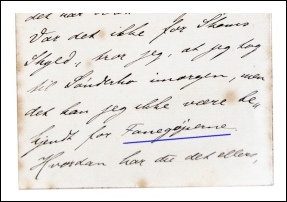 Var det ikke for Skams
Skyld, tror jeg, at jeg tog
til Sønderho imorgen, men
det kan jeg ikke være be-
kjendt for Fanøgøjerne
Hvordan har du det ellers,